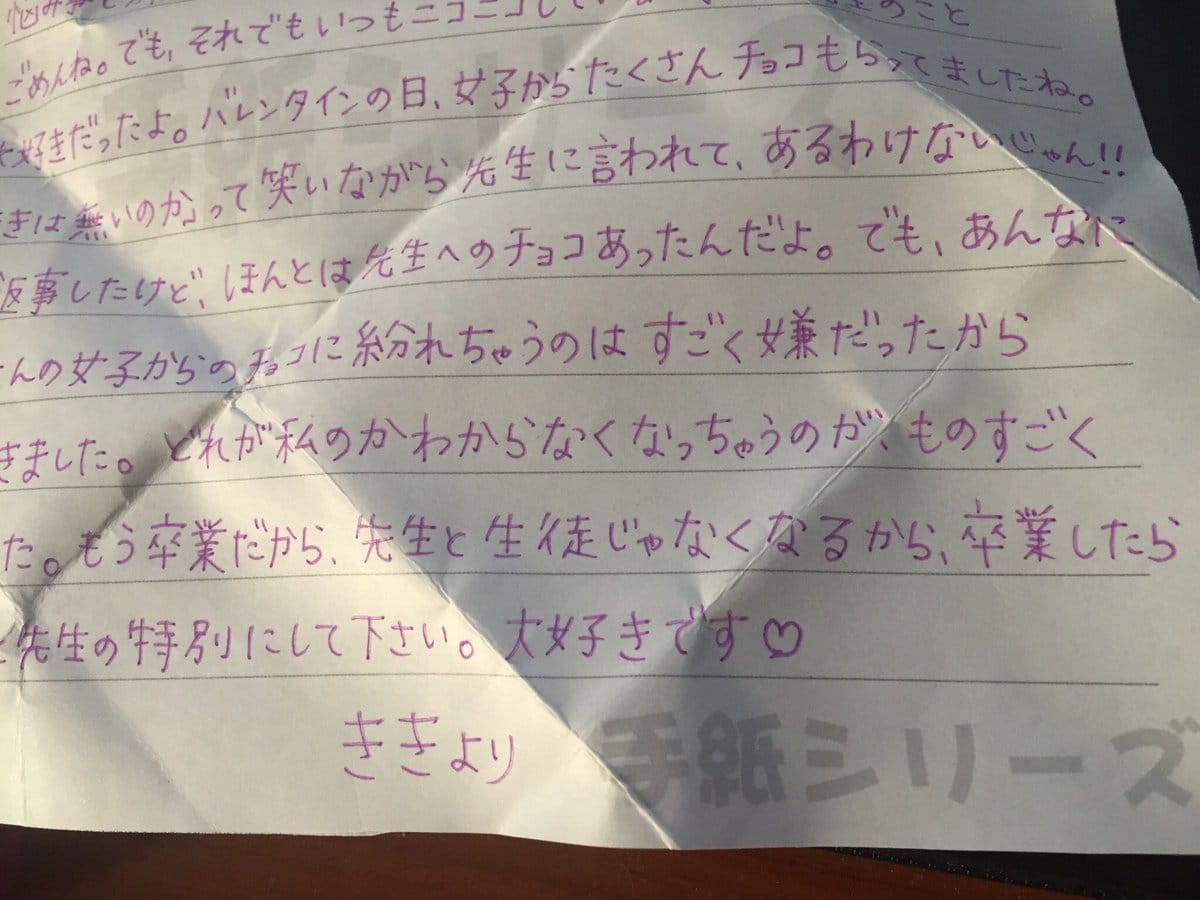 ごめんね。でも、それでもいつもニコニコして のこと
好きだったよ。バレンタインの日、女子からたくさんチョコもらってましたね。
きは無いのか」って笑いながら先生に言われて、あるわけないじゃん!!
返事したけど、ほんとは先生へのチョコあったんだよ。でも、あんなに
んの女子からのチョコに紛れちゃうのはすごく嫌だったから
きました。どれが私のかわからなくなっちゃうのが、ものすごく
た。もう卒業だから、先生と生徒じゃなくなるから、卒業したら
先生の特別にして下さい。大好きです♡
ききより
手紙シリーズ